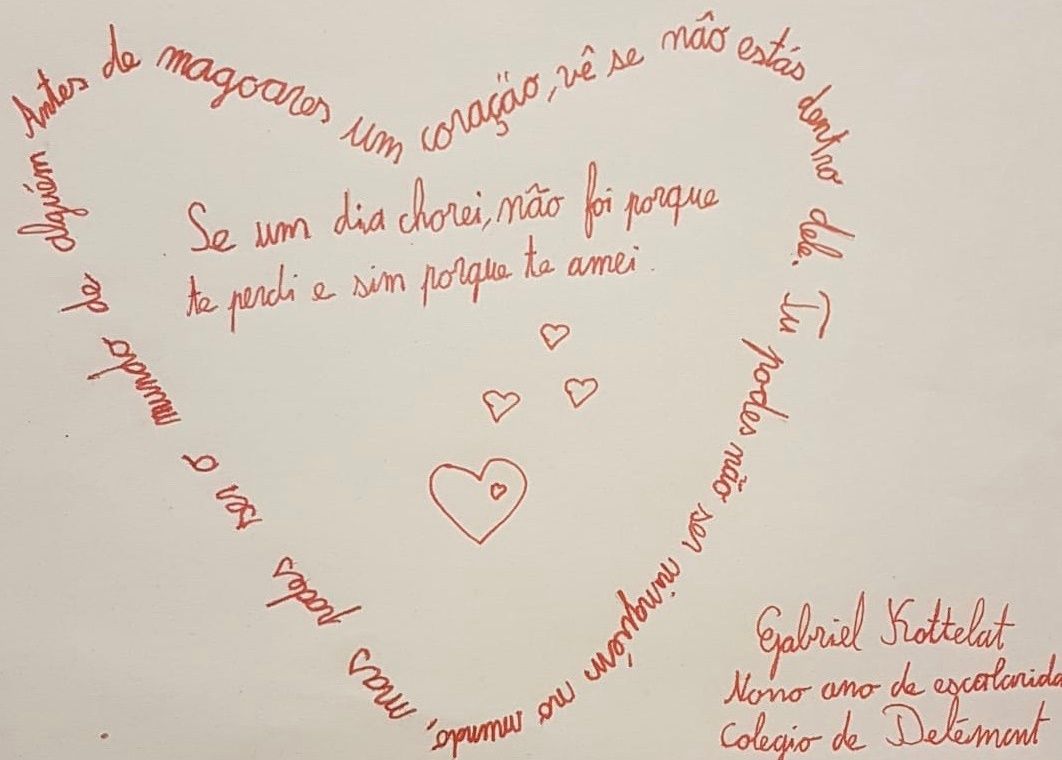 Antes de magoares um coração, vê se não estás dentro dele. Tu podes não ser ninguém no mundo, mas podes ser o mundo de alguém
Se um dia chorei, não foi porque
te perdi e sim porque te amei.
Gabriel Kottelat
Nono ano de escolarida
Colegio de Delémont